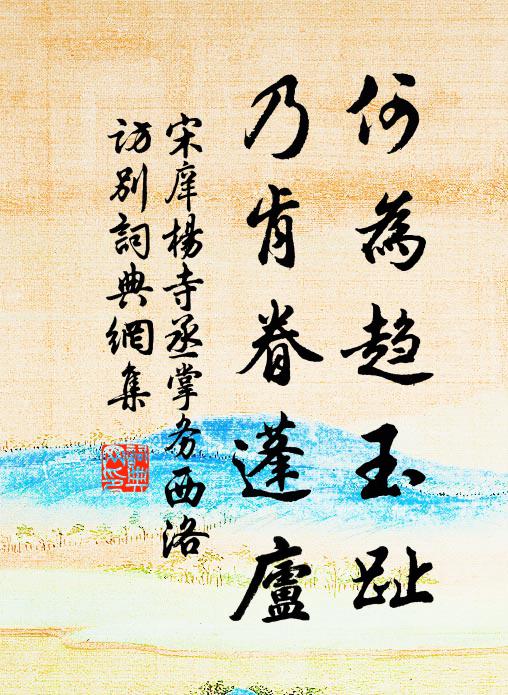 何為趋玉趾
乃肯眷蓬廬
宋庠楊寺丞掌务西洛
访别詞典網集